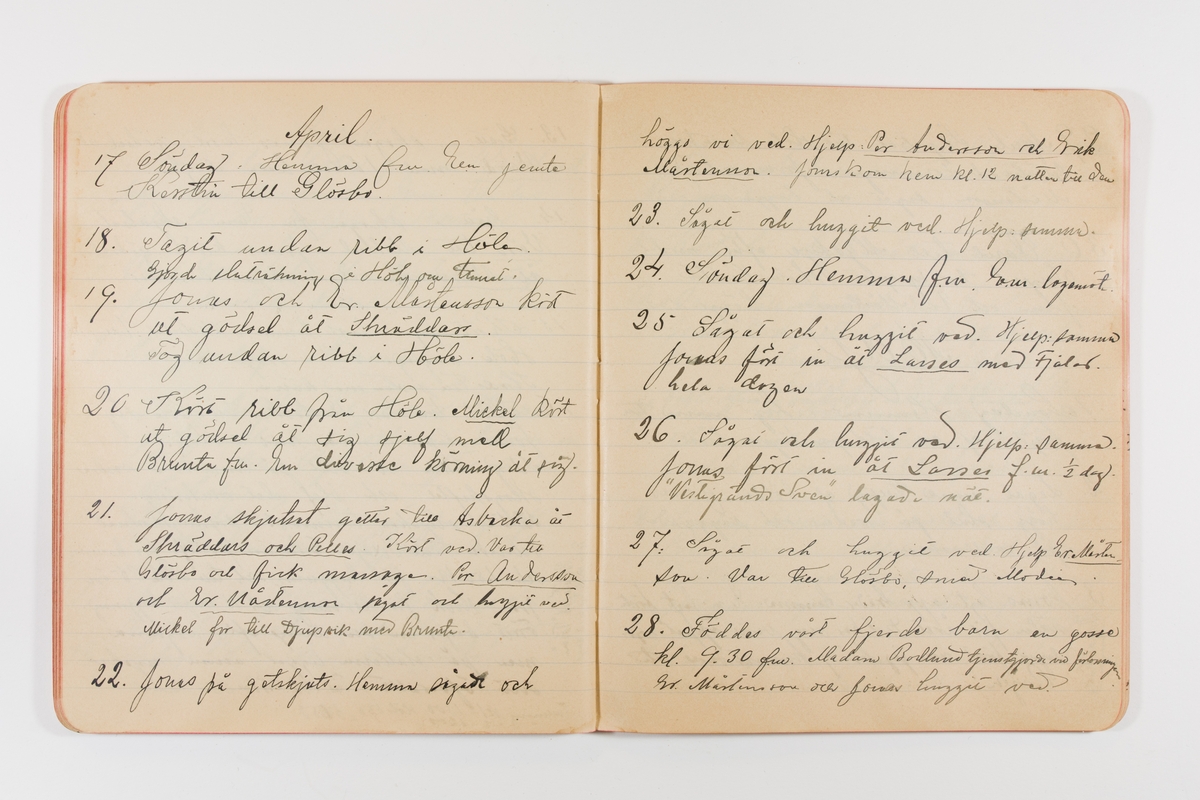 April.
17 Söndag. Hemma fm. Em jemte
Kerstin till Glösbo.
18. Tagit undan ribb i Höle.
Gjorde sluträkning i Höle om
19. Jonas och Er. Mårtensson kört
ut gödsel åt Skräddars.
Tog undan ribb i Höle.
20 Kört ribb från Höle. Mickel kört
ut gödsel åt sig sjelf med
Brunta fm. Em diverse körning åt sig.
21. Jonas skjutsat getter till Asbacka åt
Skräddars och Pelles. Kört ved. Var till
Glösbo och fick massage. Per Andersson
och Er. Mårtensson sågat och huggit ved.
Mickel for till Djupvik med Brunta.
22. Jonas på getskjuts. Hemma sågade och
höggo vi ved. Hjelp: Per Andersson och Erik
Mårtensson. Jonas kom hem kl. 12 natten till den
23. Sågat och huggit ved. Hjelp: samma.
24. Söndag. Hemma fm. Em. logemöt.
25 Sågat och huggit ved. Hjelp: samma
Jonas kört in åt Larses med Fjäled.
hela dagen
26. Sågat och huggit ved. Hjelp: samma.
Jonas kört in åt Larses f.m. ½ dag.
"Vestigränds Sven" lagade nät.
27. Sågat och huggit ved. Hjelp Er. Mårtens-
son. Var till Glösbo, med
28. Föddes vårt fjerde barn en gosse
kl. 9.30 fm. Madam Bodlund tjenstgjorde vid förlossningen
Er. Mårtensson och Jonas huggit ved.